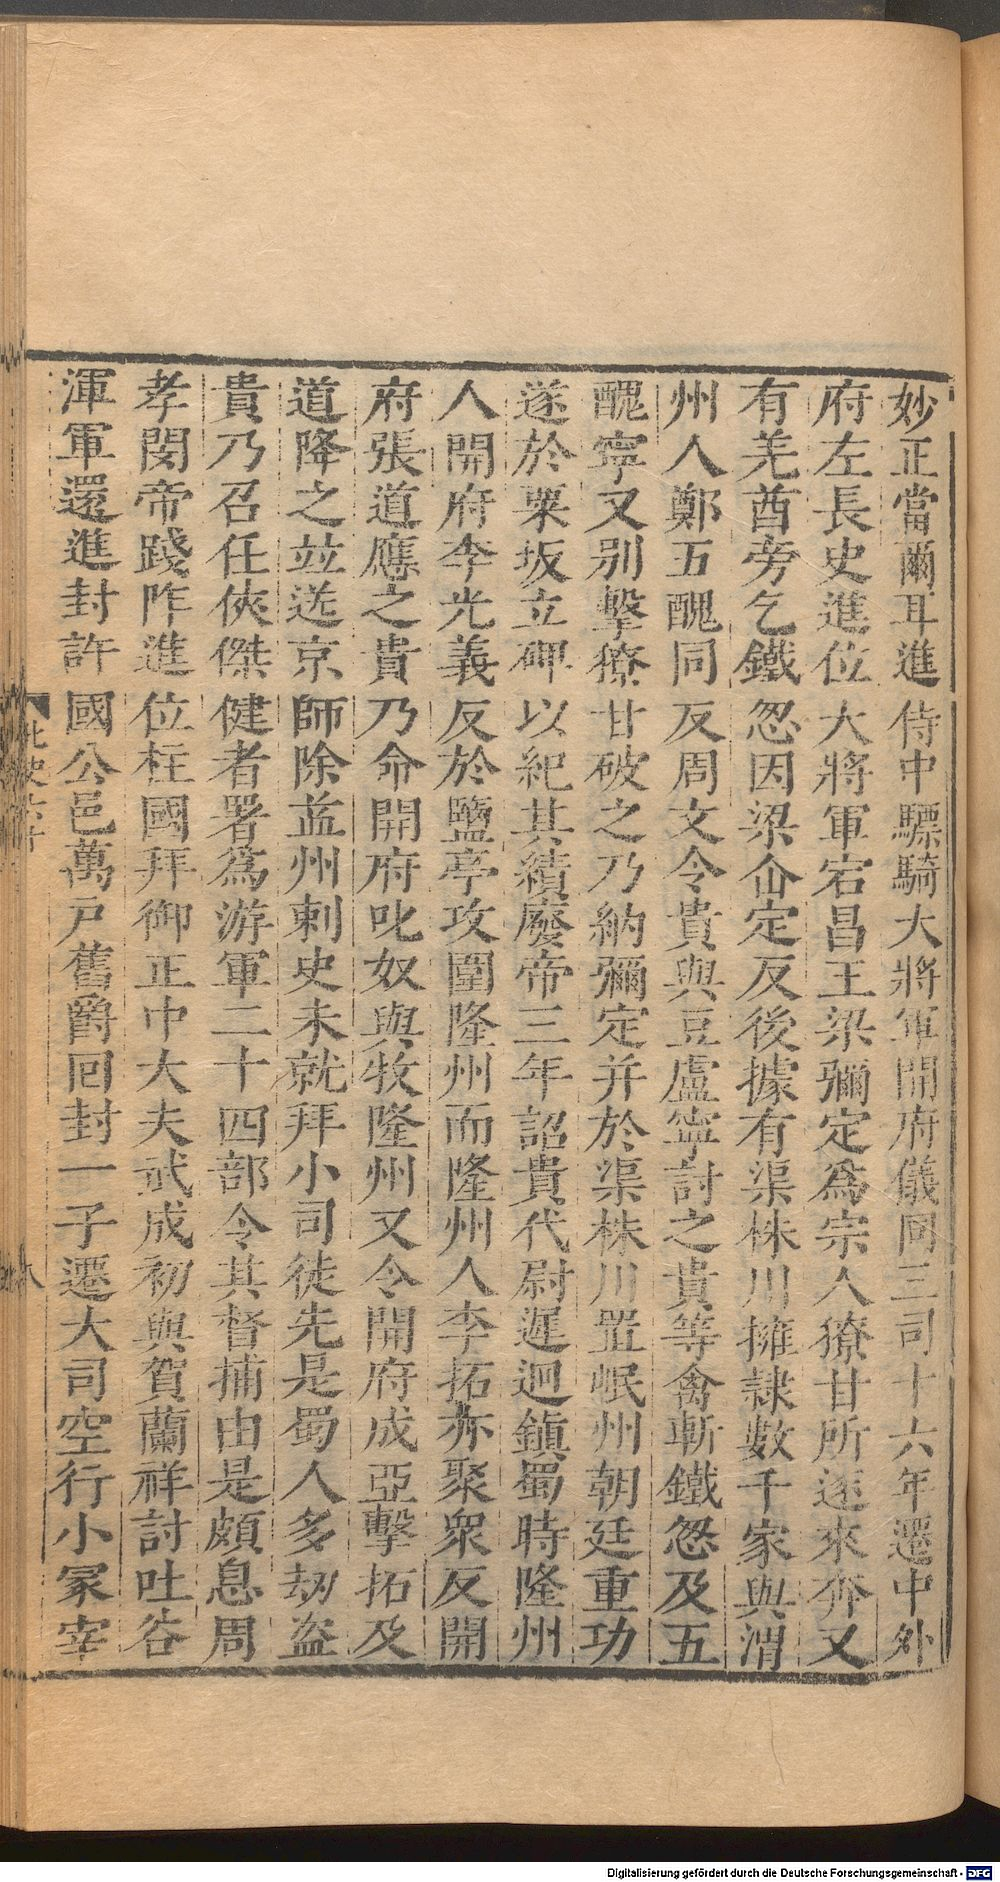 妙正當爾耳進侍中驃騎大將軍開府儀同三司十六年遷中外
府左長史進位大將軍宕昌王梁彌定爲宗人獠甘所逐來奔又
有羌酋旁乞鐵怱因梁仚定反後據有渠株川擁隷數千家與渭
州人鄭五醜同反周文令貴與豆盧寧討之貴等禽斬鐵怱及五
醜寧又別擊獠甘破之乃納彌定并於渠株川置岷州朝廷重功
遂於粟坂立碑以紀其績廢帝三年詔貴代尉遲迥鎮蜀時隆州
人開府李光義反於鹽亭攻圍隆州而隆州人李拓亦聚衆反開
府張道應之貴乃命開府叱奴與牧隆州又令開府成亞擊拓及
道降之並送京師除益州刺史未就拜小司徒先是蜀人多刼盜
貴乃召任俠傑健者署爲游軍二十四部令其督捕由是頗息周
孝閔帝踐阼進位柱國拜御正中大夫武成初與賀蘭祥討吐谷
渾軍還進封許國公邑萬戸舊爵回封一子遷大司空行小冢宰
八
Digitalisierung gefördert durch die Deutsche Forschungsgemeinschaft - DFG